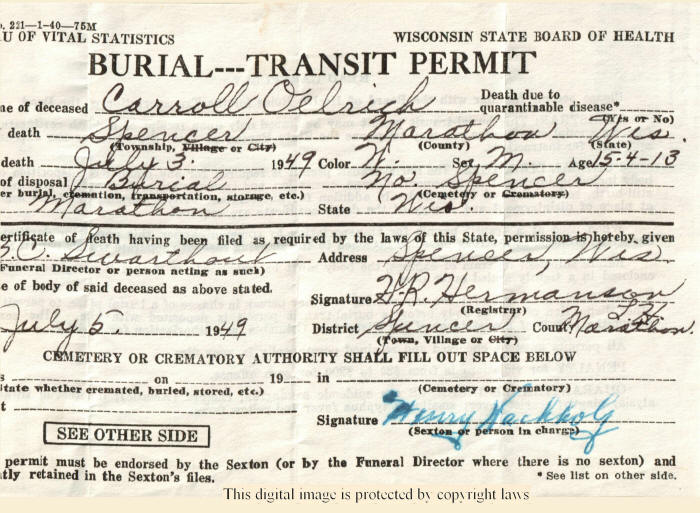 o. 221—1-40—75M
AU OF VITAL STATISTICS WISCONSIN STATE BOARD OF HEALTH
BURIAL---TRANSIT PERMIT
me of deceased Carroll Oelrich Death due to quarantinable disease*
(Yes or No)
death Spencer Marathon Wis.
(Township, Village or City) (County) (State)
death July 3. 1949 Color W. Sex M. Age 15-4-13
of disposal Burial No. Spencer
er burial, cremation, transportation, storage, etc.) (Cemetery or Crematory)
Marathon State Wis.
ertificate of death having been filed as required by the laws of this State, permission is hereby given
C. Swarthout Address Spencer, Wis
Funeral Director or person acting as such)
e of body of said deceased as above stated.
Signature F.R. Hermanson
(Registrar)
July 5. 1949 District Spencer County Marathon.
(Town, Village or City)
CEMETERY OR CREMATORY AUTHORITY SHALL FILL OUT SPACE BELOW
s on 19 in
tate whether cremated, buried, stored, etc.) (Cemetery or Crematory)
t
Signature Henry Nackholz
(Sexton or person in charge)
SEE OTHER SIDE
permit must be endorsed by the Sexton (or by the Funeral Director where there is no sexton) and
tly retained in the Sexton's files. * See list on other side.
This digital image is protected by copyright laws